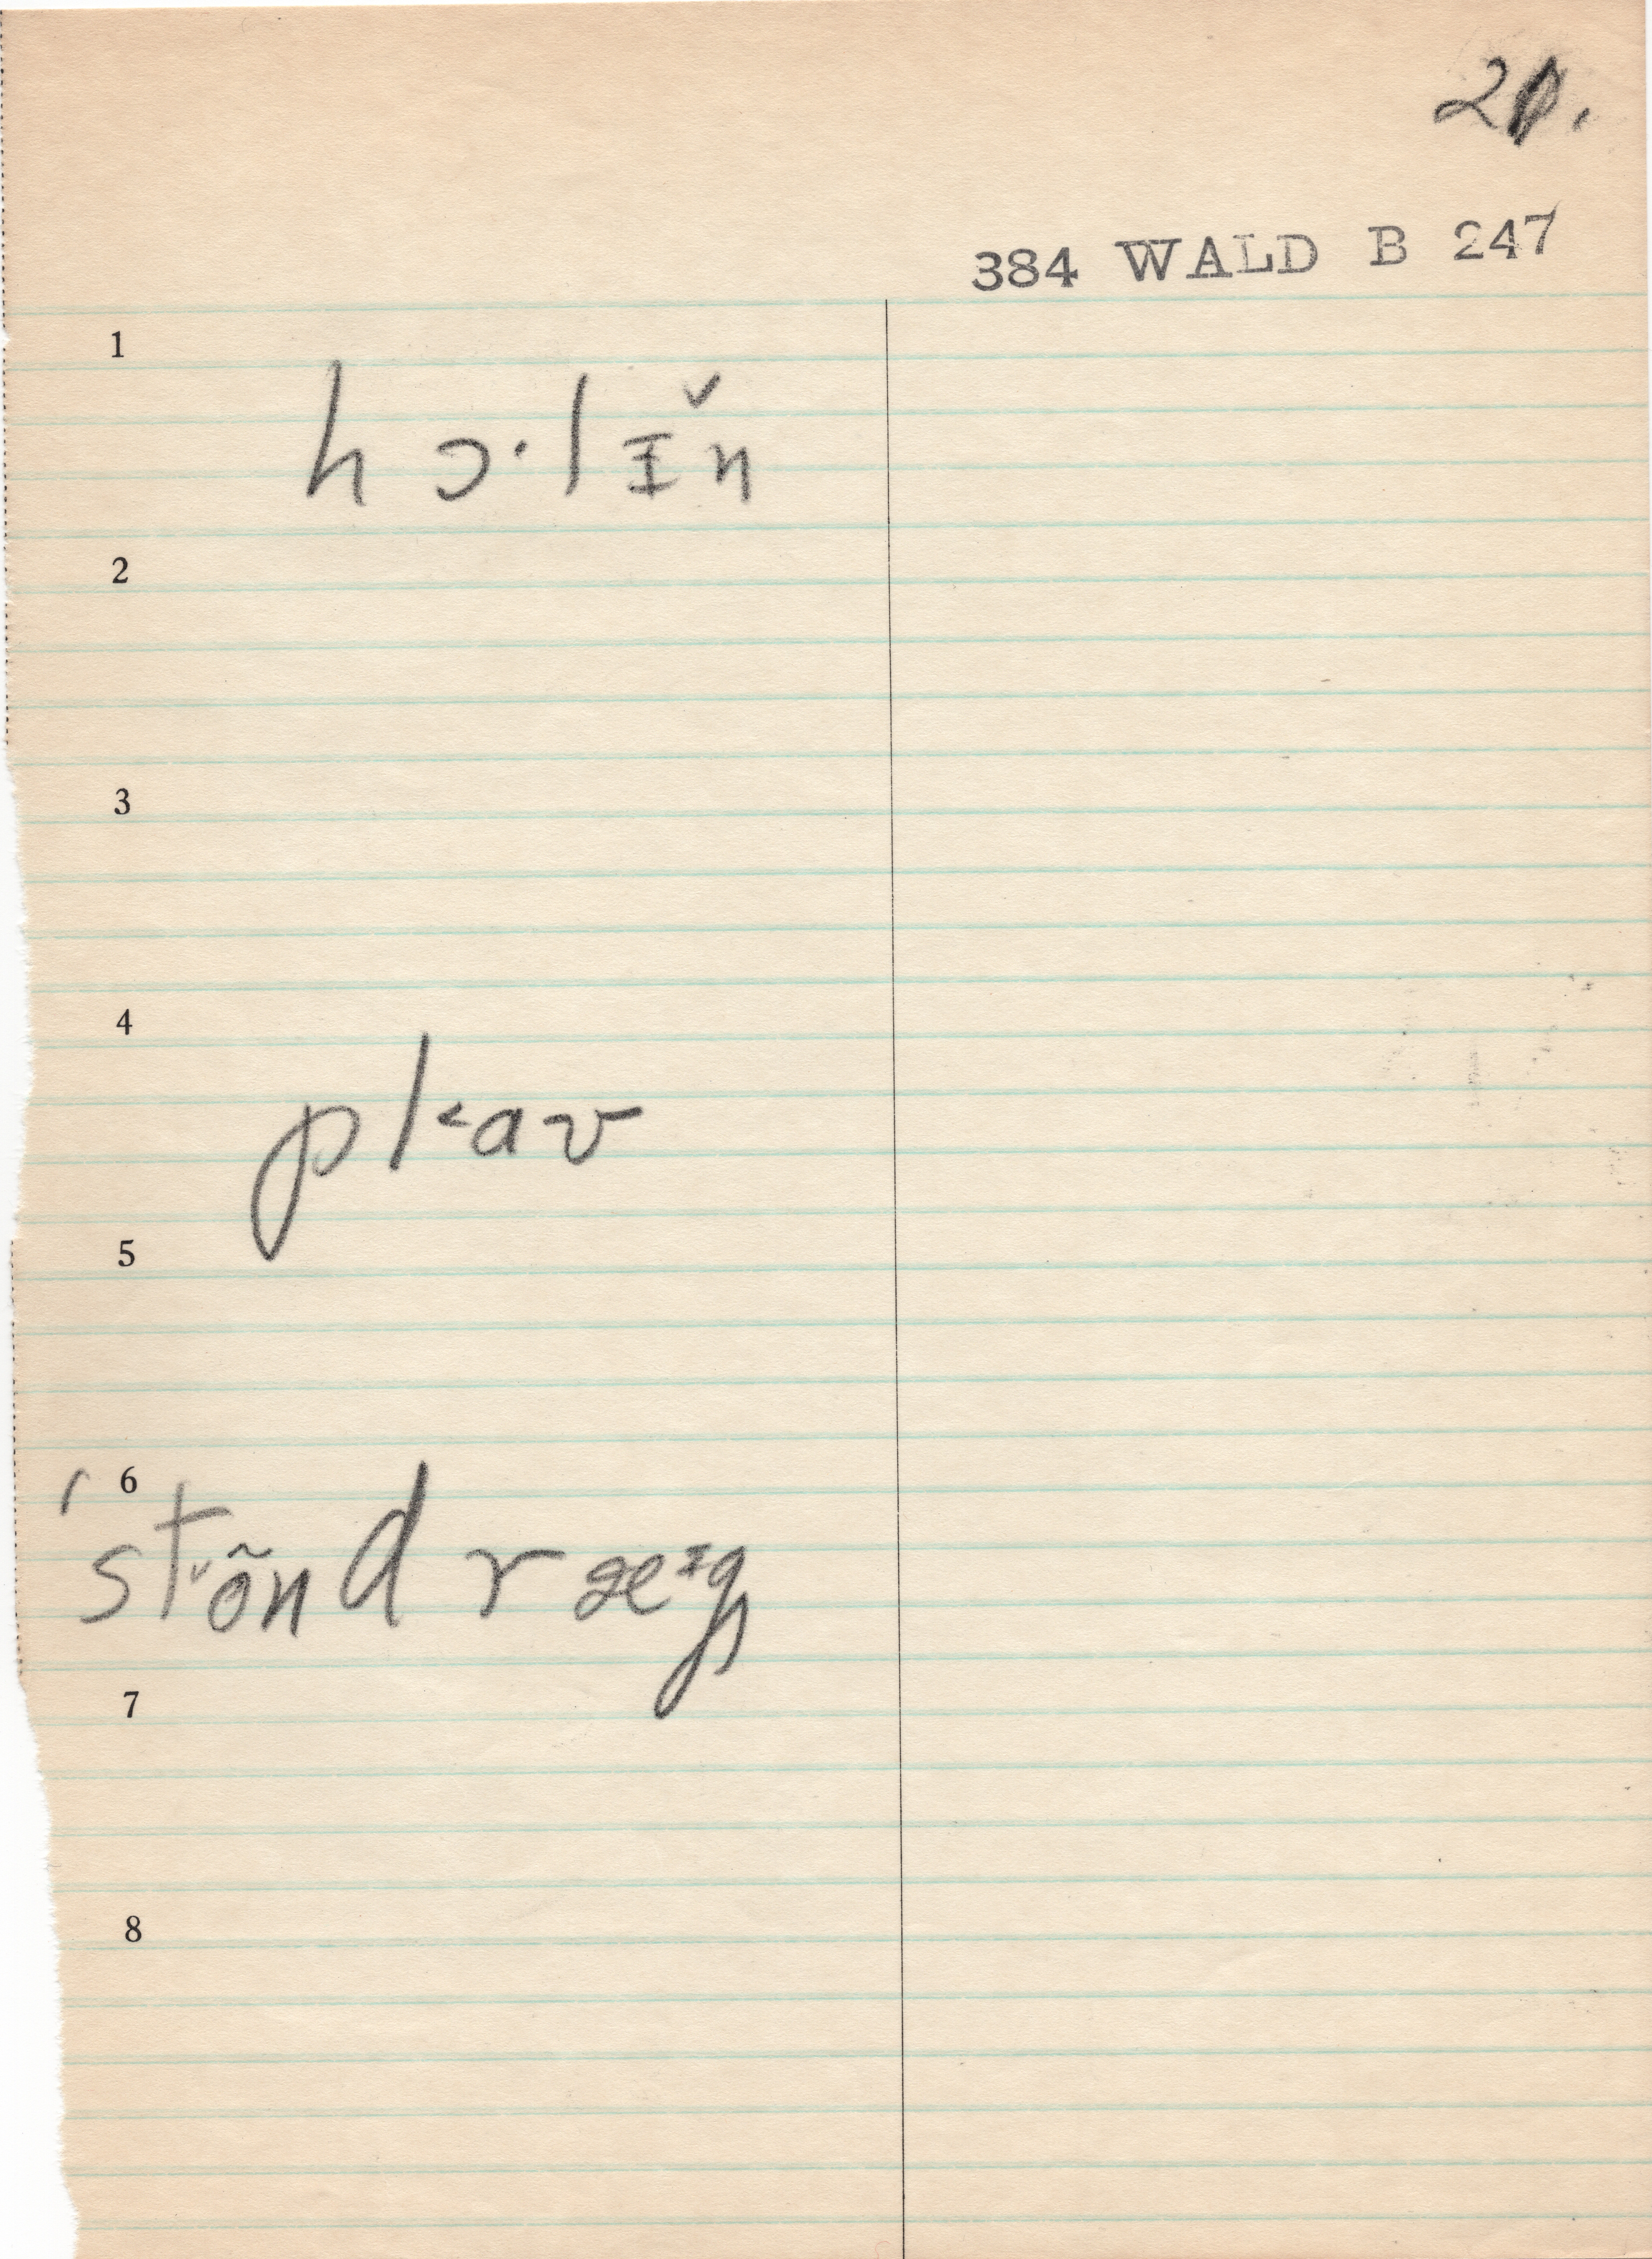 21.
384 WALD B 247
1
hɔ·lɪ̆n
2
3
4
pl˂aʊ
5
6
ˈstõnd ræᶦg
7
8